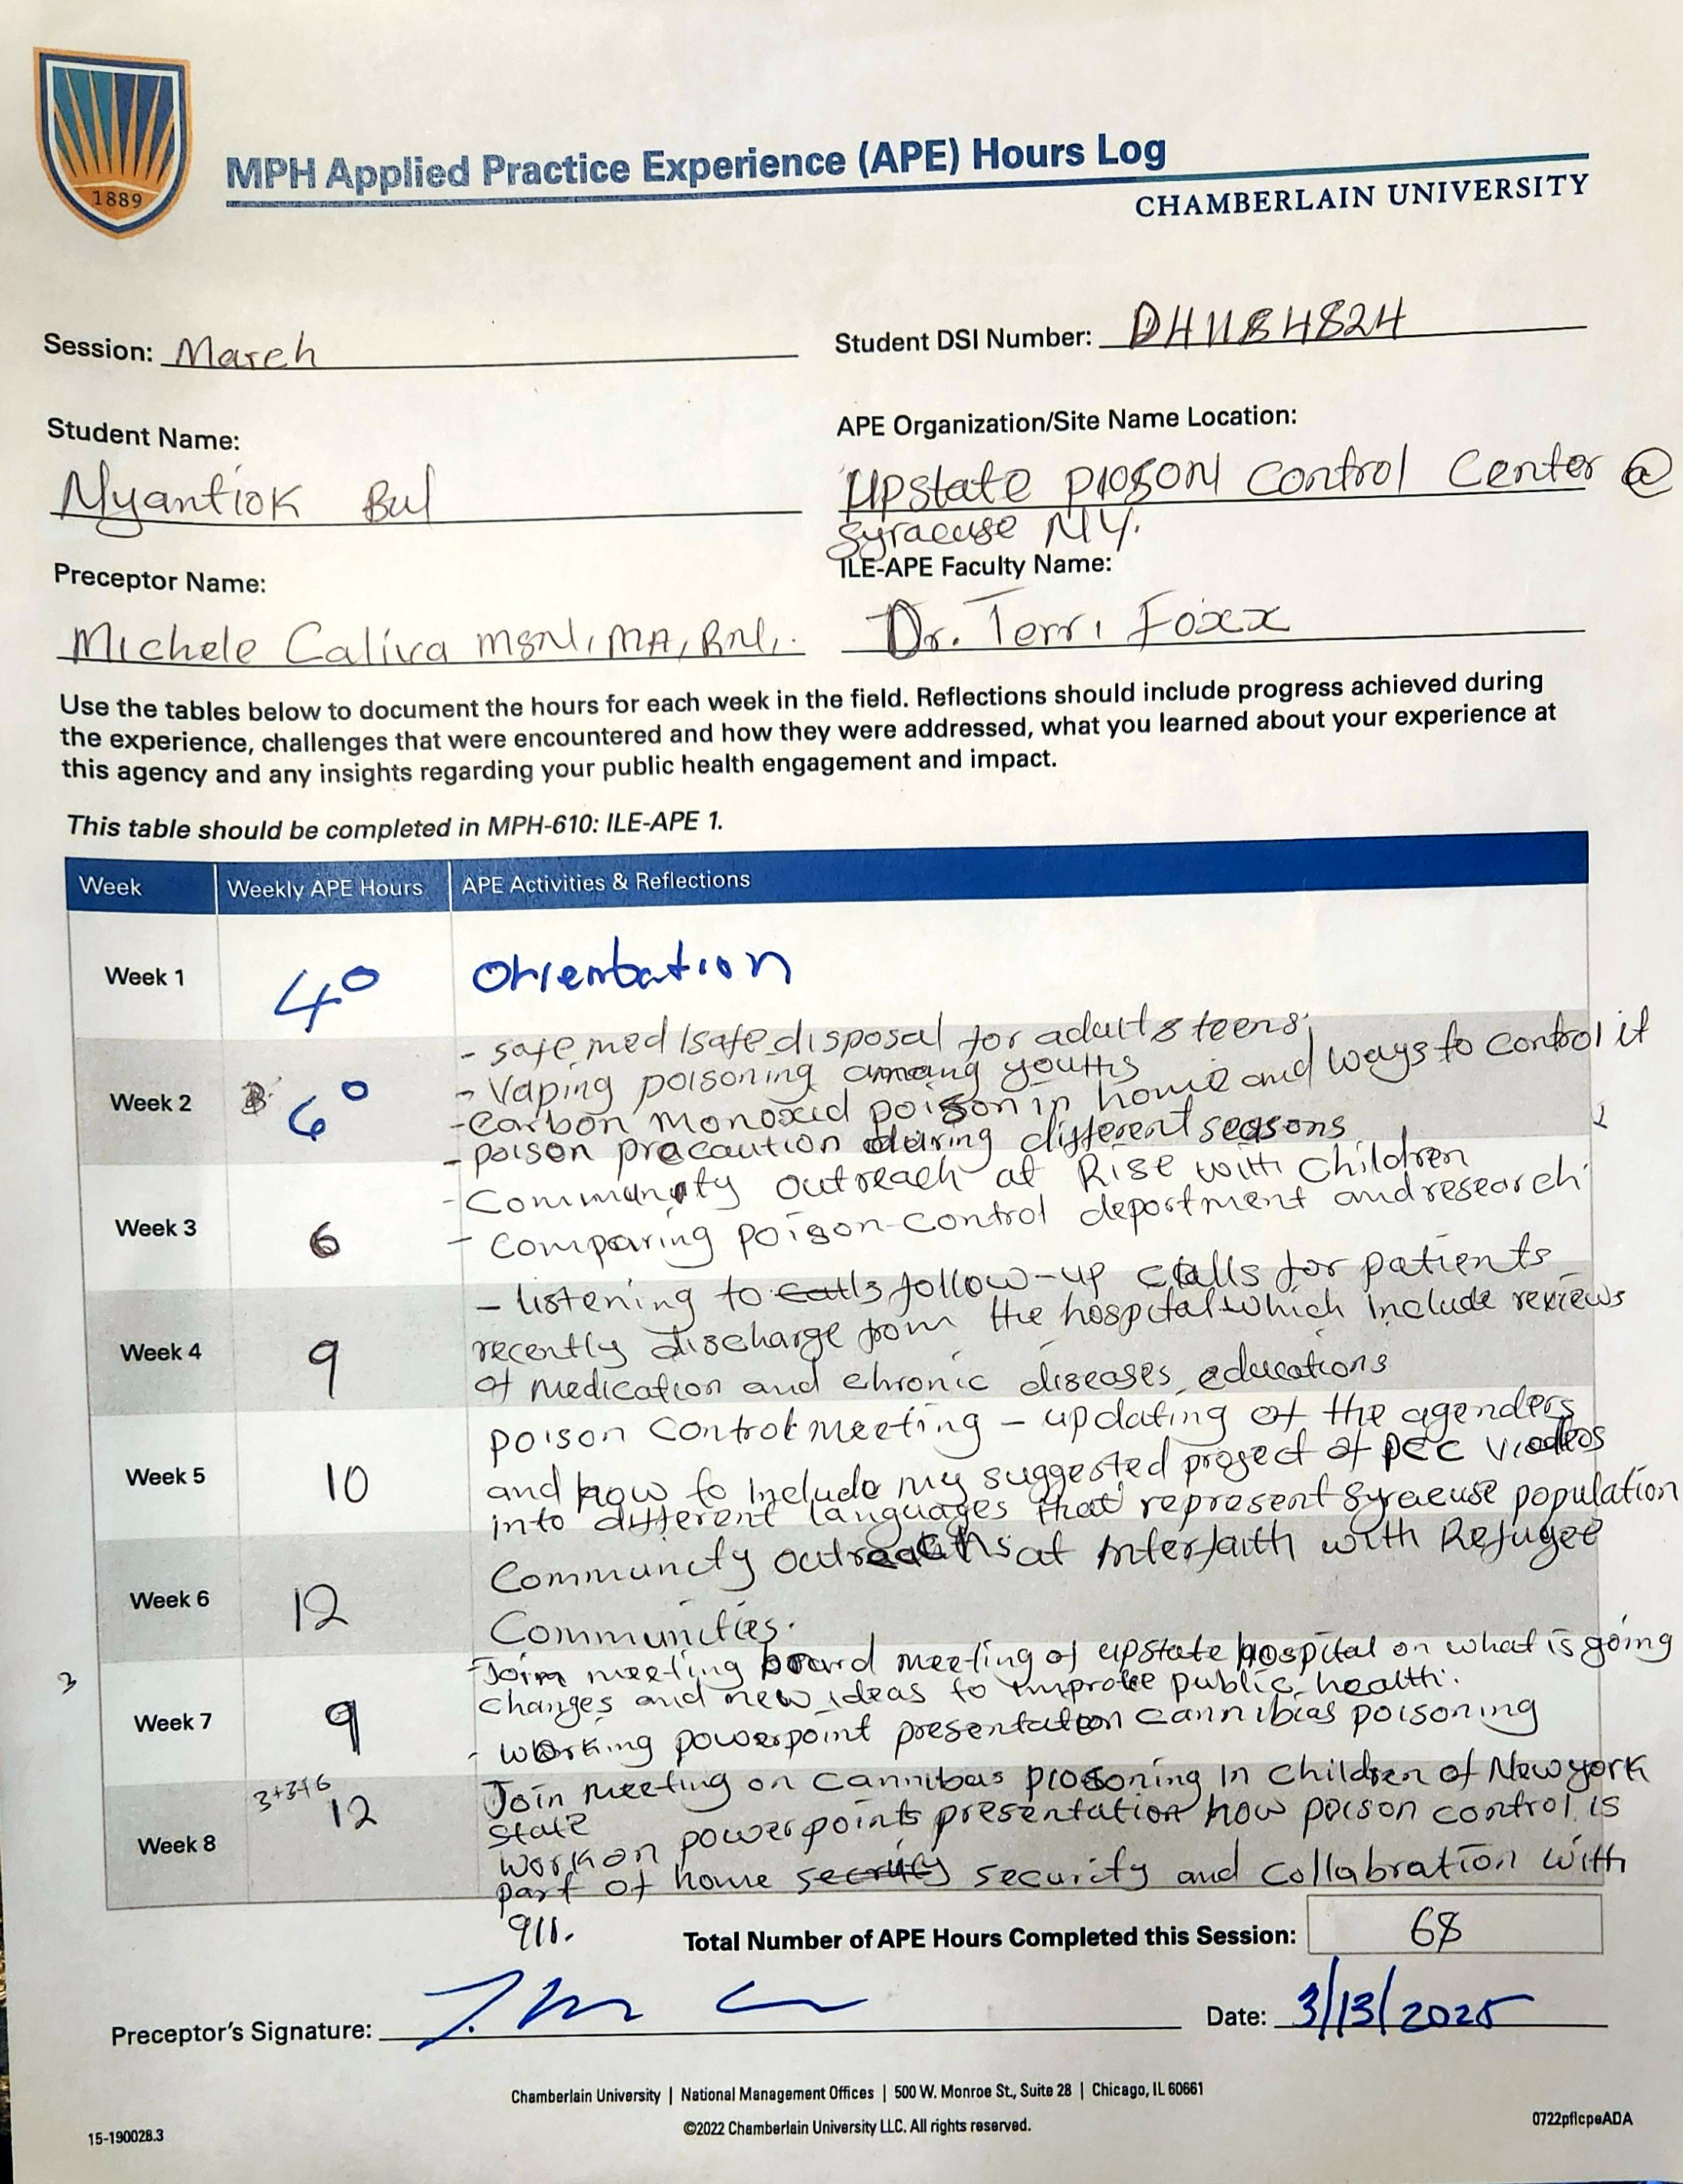 1889
MPH Applied Practice Experience (APE) Hours Log
CHAMBERLAIN UNIVERSITY
Session: March
Student DSI Number: D41184824
Student Name:
APE Organization/Site Name Location:
Nyantiok Bul
Upstate pioson Control Center @
Syracuse NY.
Preceptor Name:
ILE-APE Faculty Name:
Michele Caliva MSN, MA, RN,.
Dr. Terri Foxx
Use the tables below to document the hours for each week in the field. Reflections should include progress achieved during
the experience, challenges that were encountered and how they were addressed, what you learned about your experience at
this agency and any insights regarding your public health engagement and impact.
This table should be completed in MPH-610: ILE-APE 1.
Week Weekly APE Hours APE Activities & Reflections
Week 1 4° Orientation
- safe med/safe disposal for adult & teens
- Vaping poisoning among youths
Week 2 6°
- Carbon monoxid poison in home and ways to control it
- poison precaution during different seasons
- Community outreach at Rise with Children
Week 3 6
- Comparing poison-control department and research
- listening to calls follow-up calls for patients
recently discharge from the hospital which include reviews
Week 4 9
of medication and chronic diseases educations
poison Control meeting - updating of the agenders
Week 5 10
and how to include my suggested project of PCC viodeos
into different languages that represent Syracuse population
Community outreachs at Interfaith with Refugee
Week 6 12
Communities.
3
- Join meeting board meeting of upstate hospital on what is going
changes and new ideas to improve public health.
Week 7 9
- working powerpoint presentation cannibias poisoning
3+3+6
Join meeting on cannibas pioosoning in children of New york
state
Week 8 12
work on powerpoints presentation how poison control is
part of home security security and collabration with
911.
Total Number of APE Hours Completed this Session: 68
Preceptor's Signature:
Date: 3/13/2025
Chamberlain University | National Management Offices | 500 W. Monroe St., Suite 28 | Chicago, IL 60661
©2022 Chamberlain University LLC. All rights reserved.
15-190028.3
0722pflcpeADA